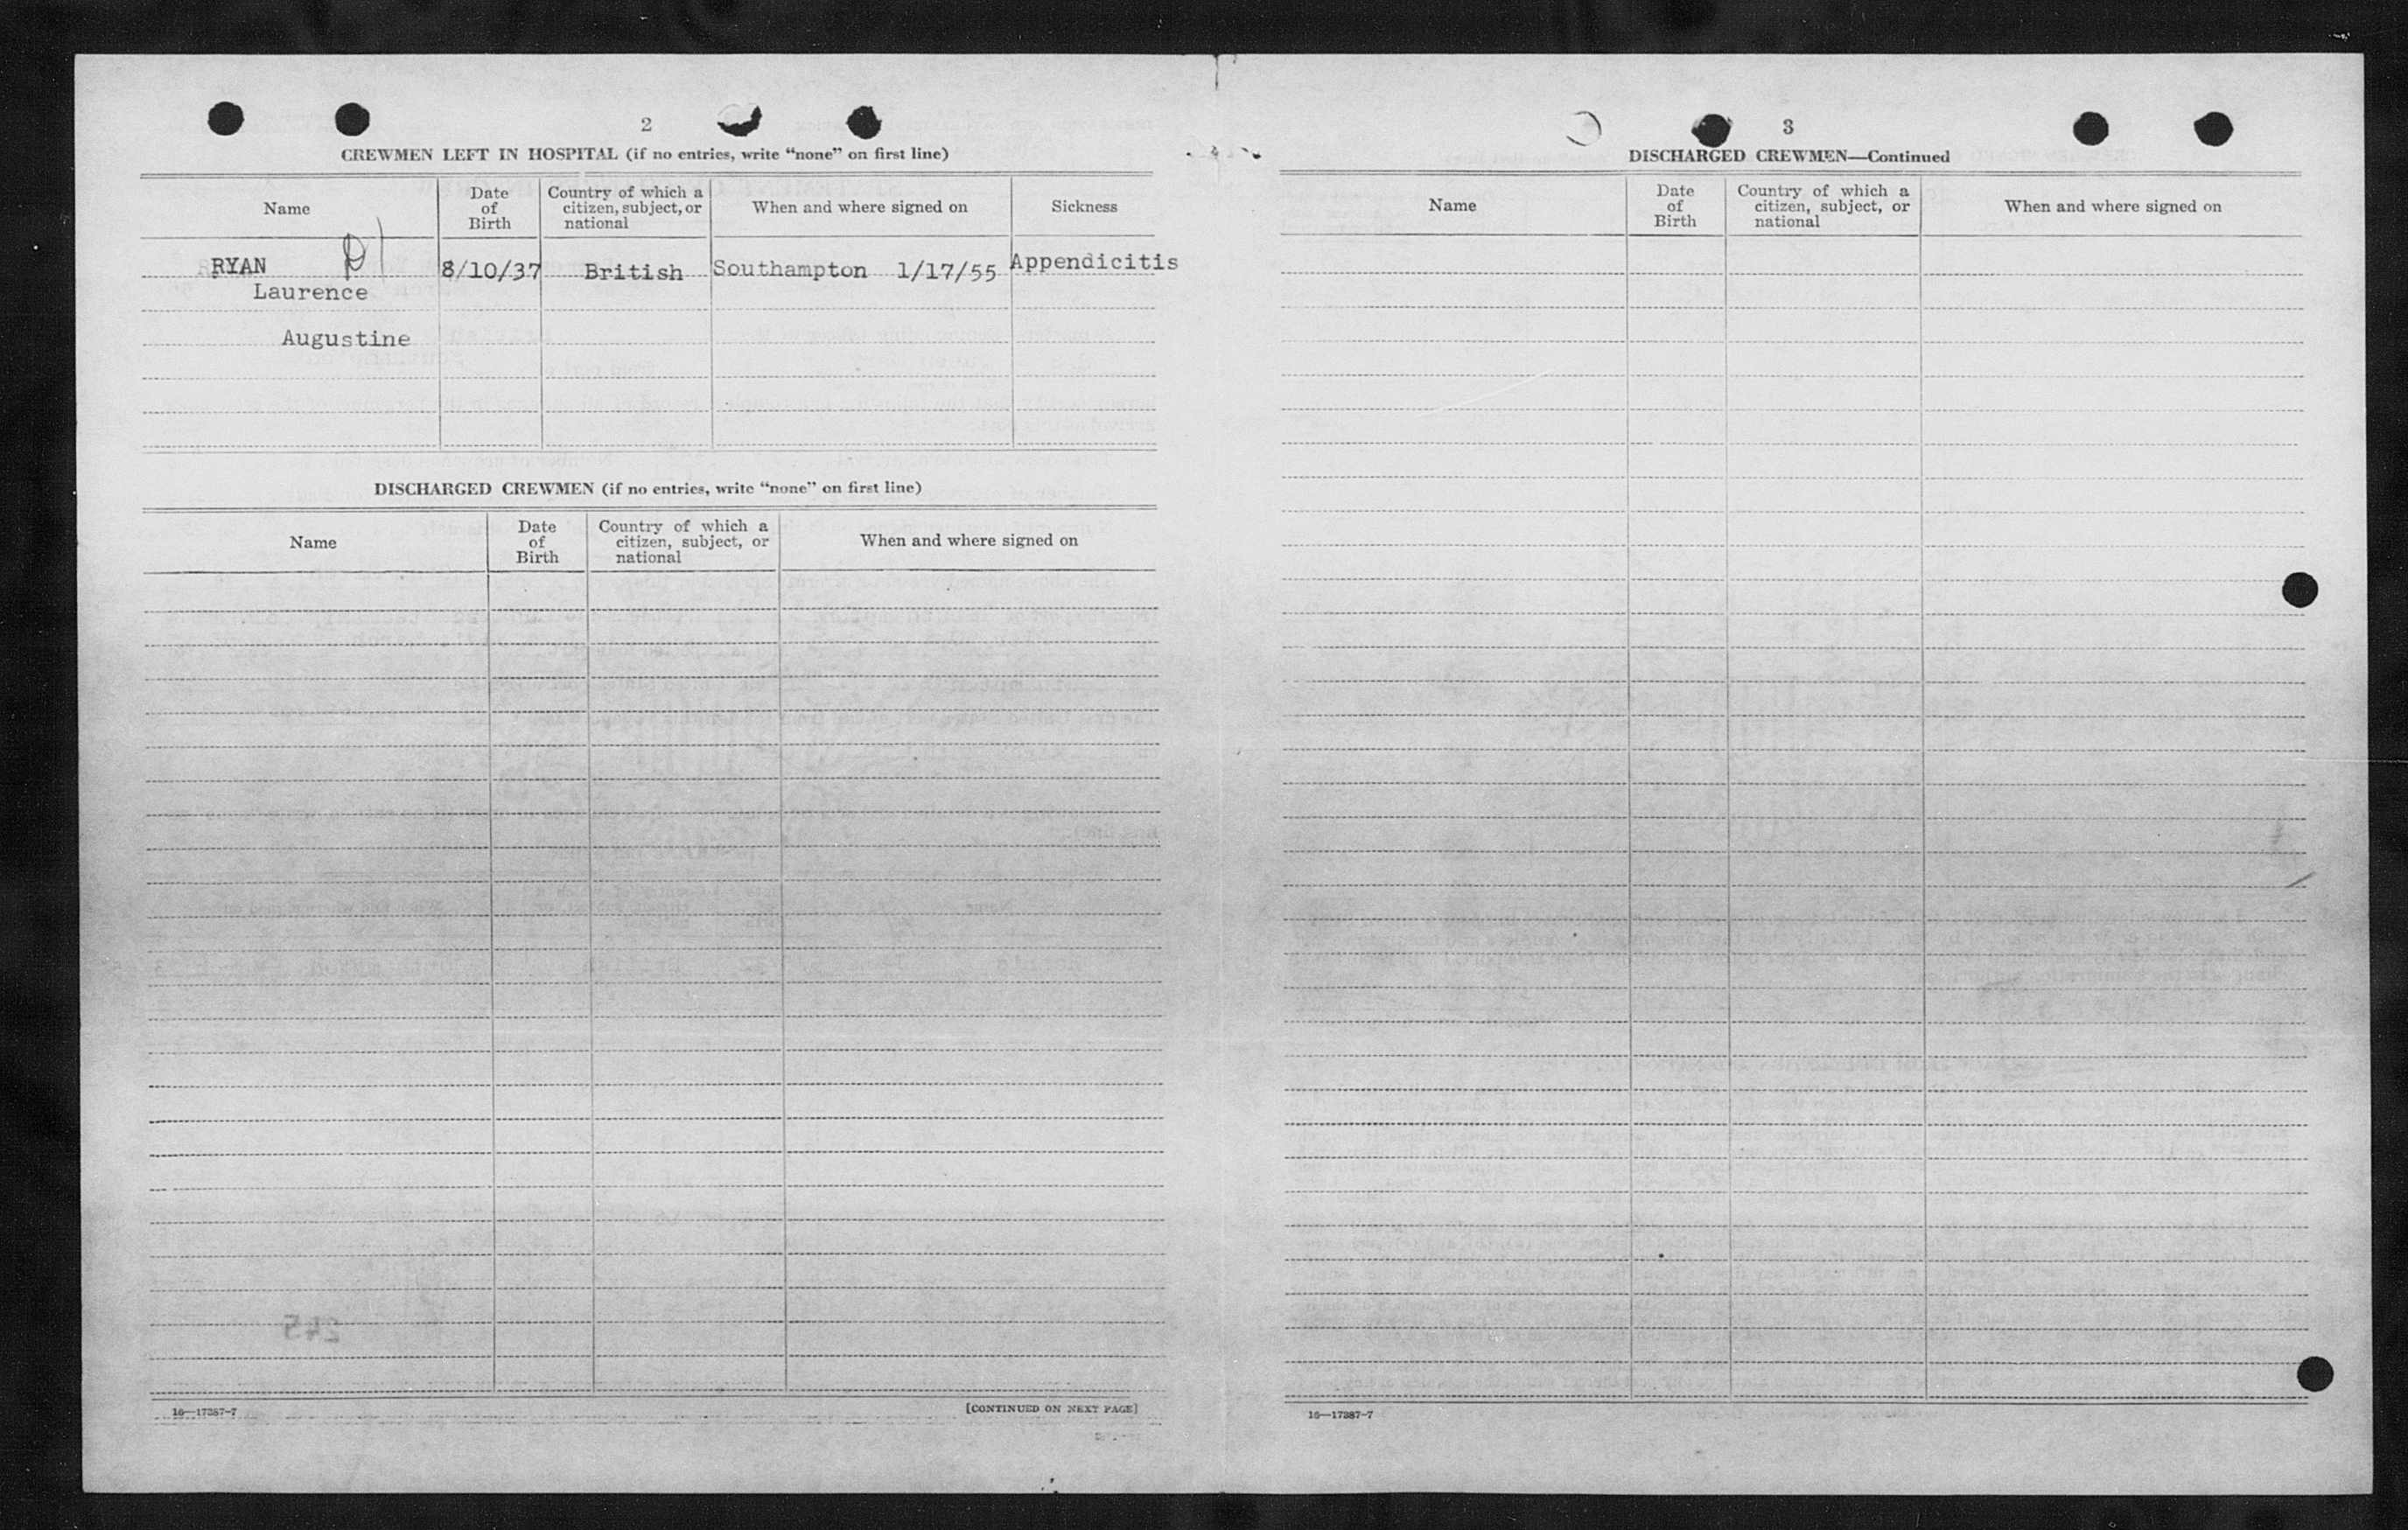 2
CREWMEN LEFT IN HOSPITAL (if no entries, write "none" on first line)
Name
Date of Birth
Country of which a citizen, subject, or national
When and where signed on
Sickness
RYAN
8/10/37
British
Southampton 1/17/55
Appendicitis
Laurence
Augustine
DISCHARGED CREWMEN (if no entries, write "none" on first line)
Name
Date of Birth
Country of which a citizen, subject, or national
When and where signed on
16—17387-7
[CONTINUED ON NEXT PAGE]
3
DISCHARGED CREWMEN—Continued
Name
Date of Birth
Country of which a citizen, subject, or national
When and where signed on
16—17387-7